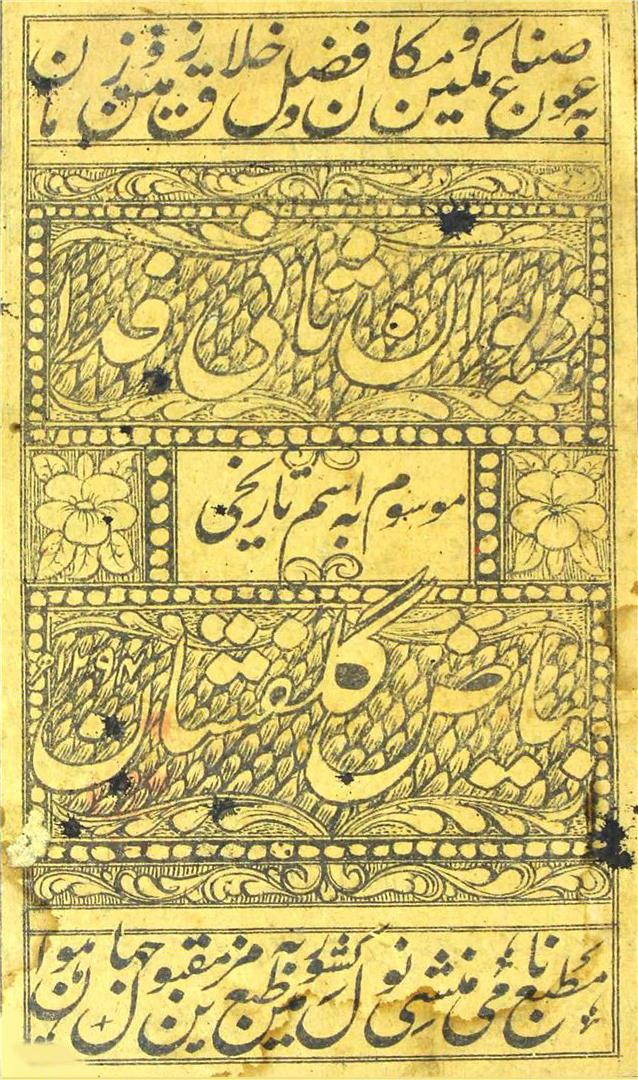 به عون صناع مکین و مکان و فضل خلاق زمین و زمان
دیوان ثانی فدا
موسوم به اسم تاریخی
بیاض گلفشان ۱۲۹۴
مطبع نامی منشی نول کشور مین طبع مزین مقبول جہان ہوا